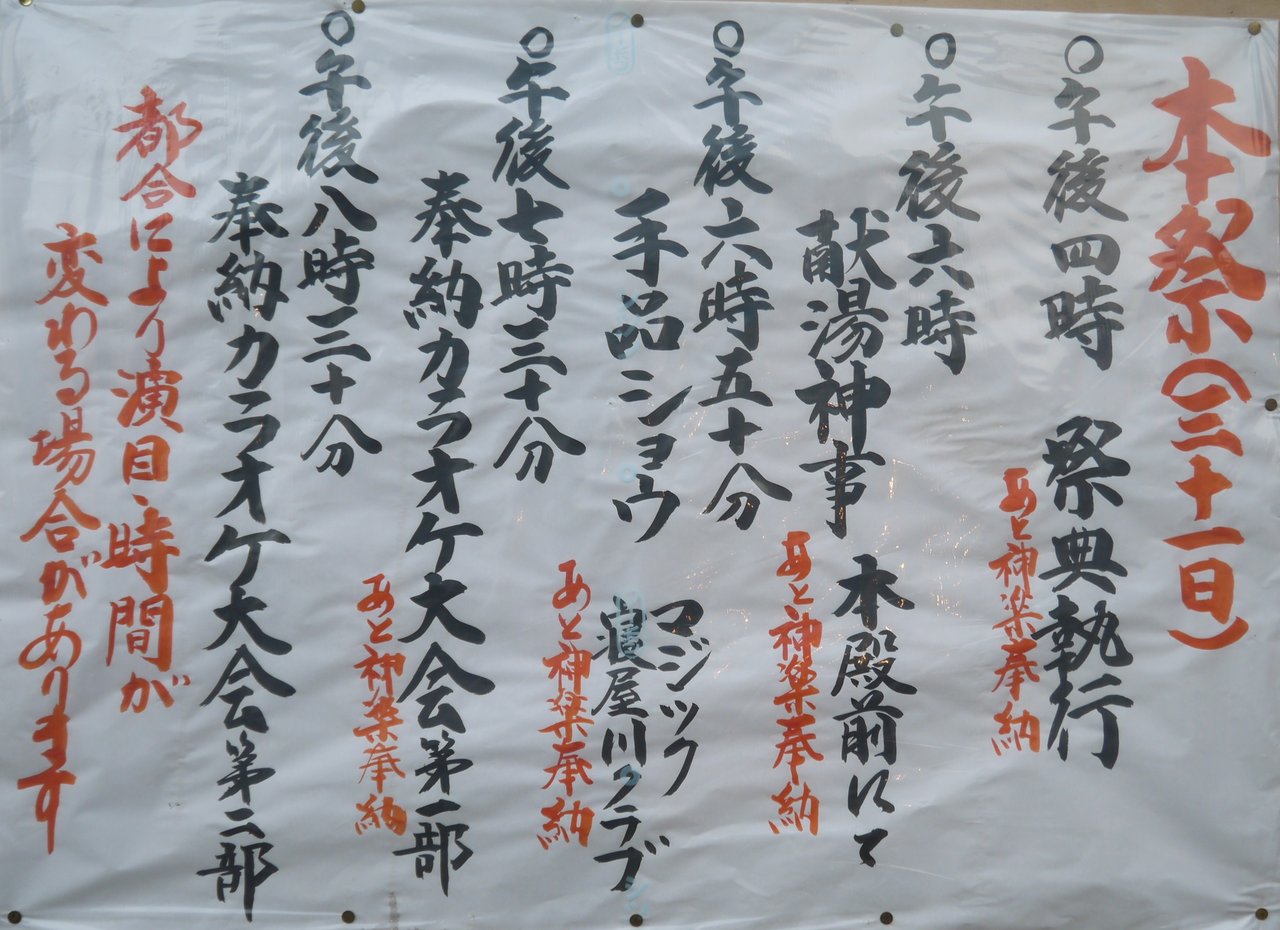 本祭(三十一日)
○午後四時 祭典執行
あと神楽奉納
○午後六時
献湯神事 本殿前にて
あと神楽奉納
○午後六時五十分
手品ショウ マジック
寝屋川クラブ
あと神楽奉納
○午後七時三十分
奉納カラオケ大会第一部
あと神楽奉納
○午後八時三十分
奉納カラオケ大会第二部
都合により演目、時間が
変わる場合があります